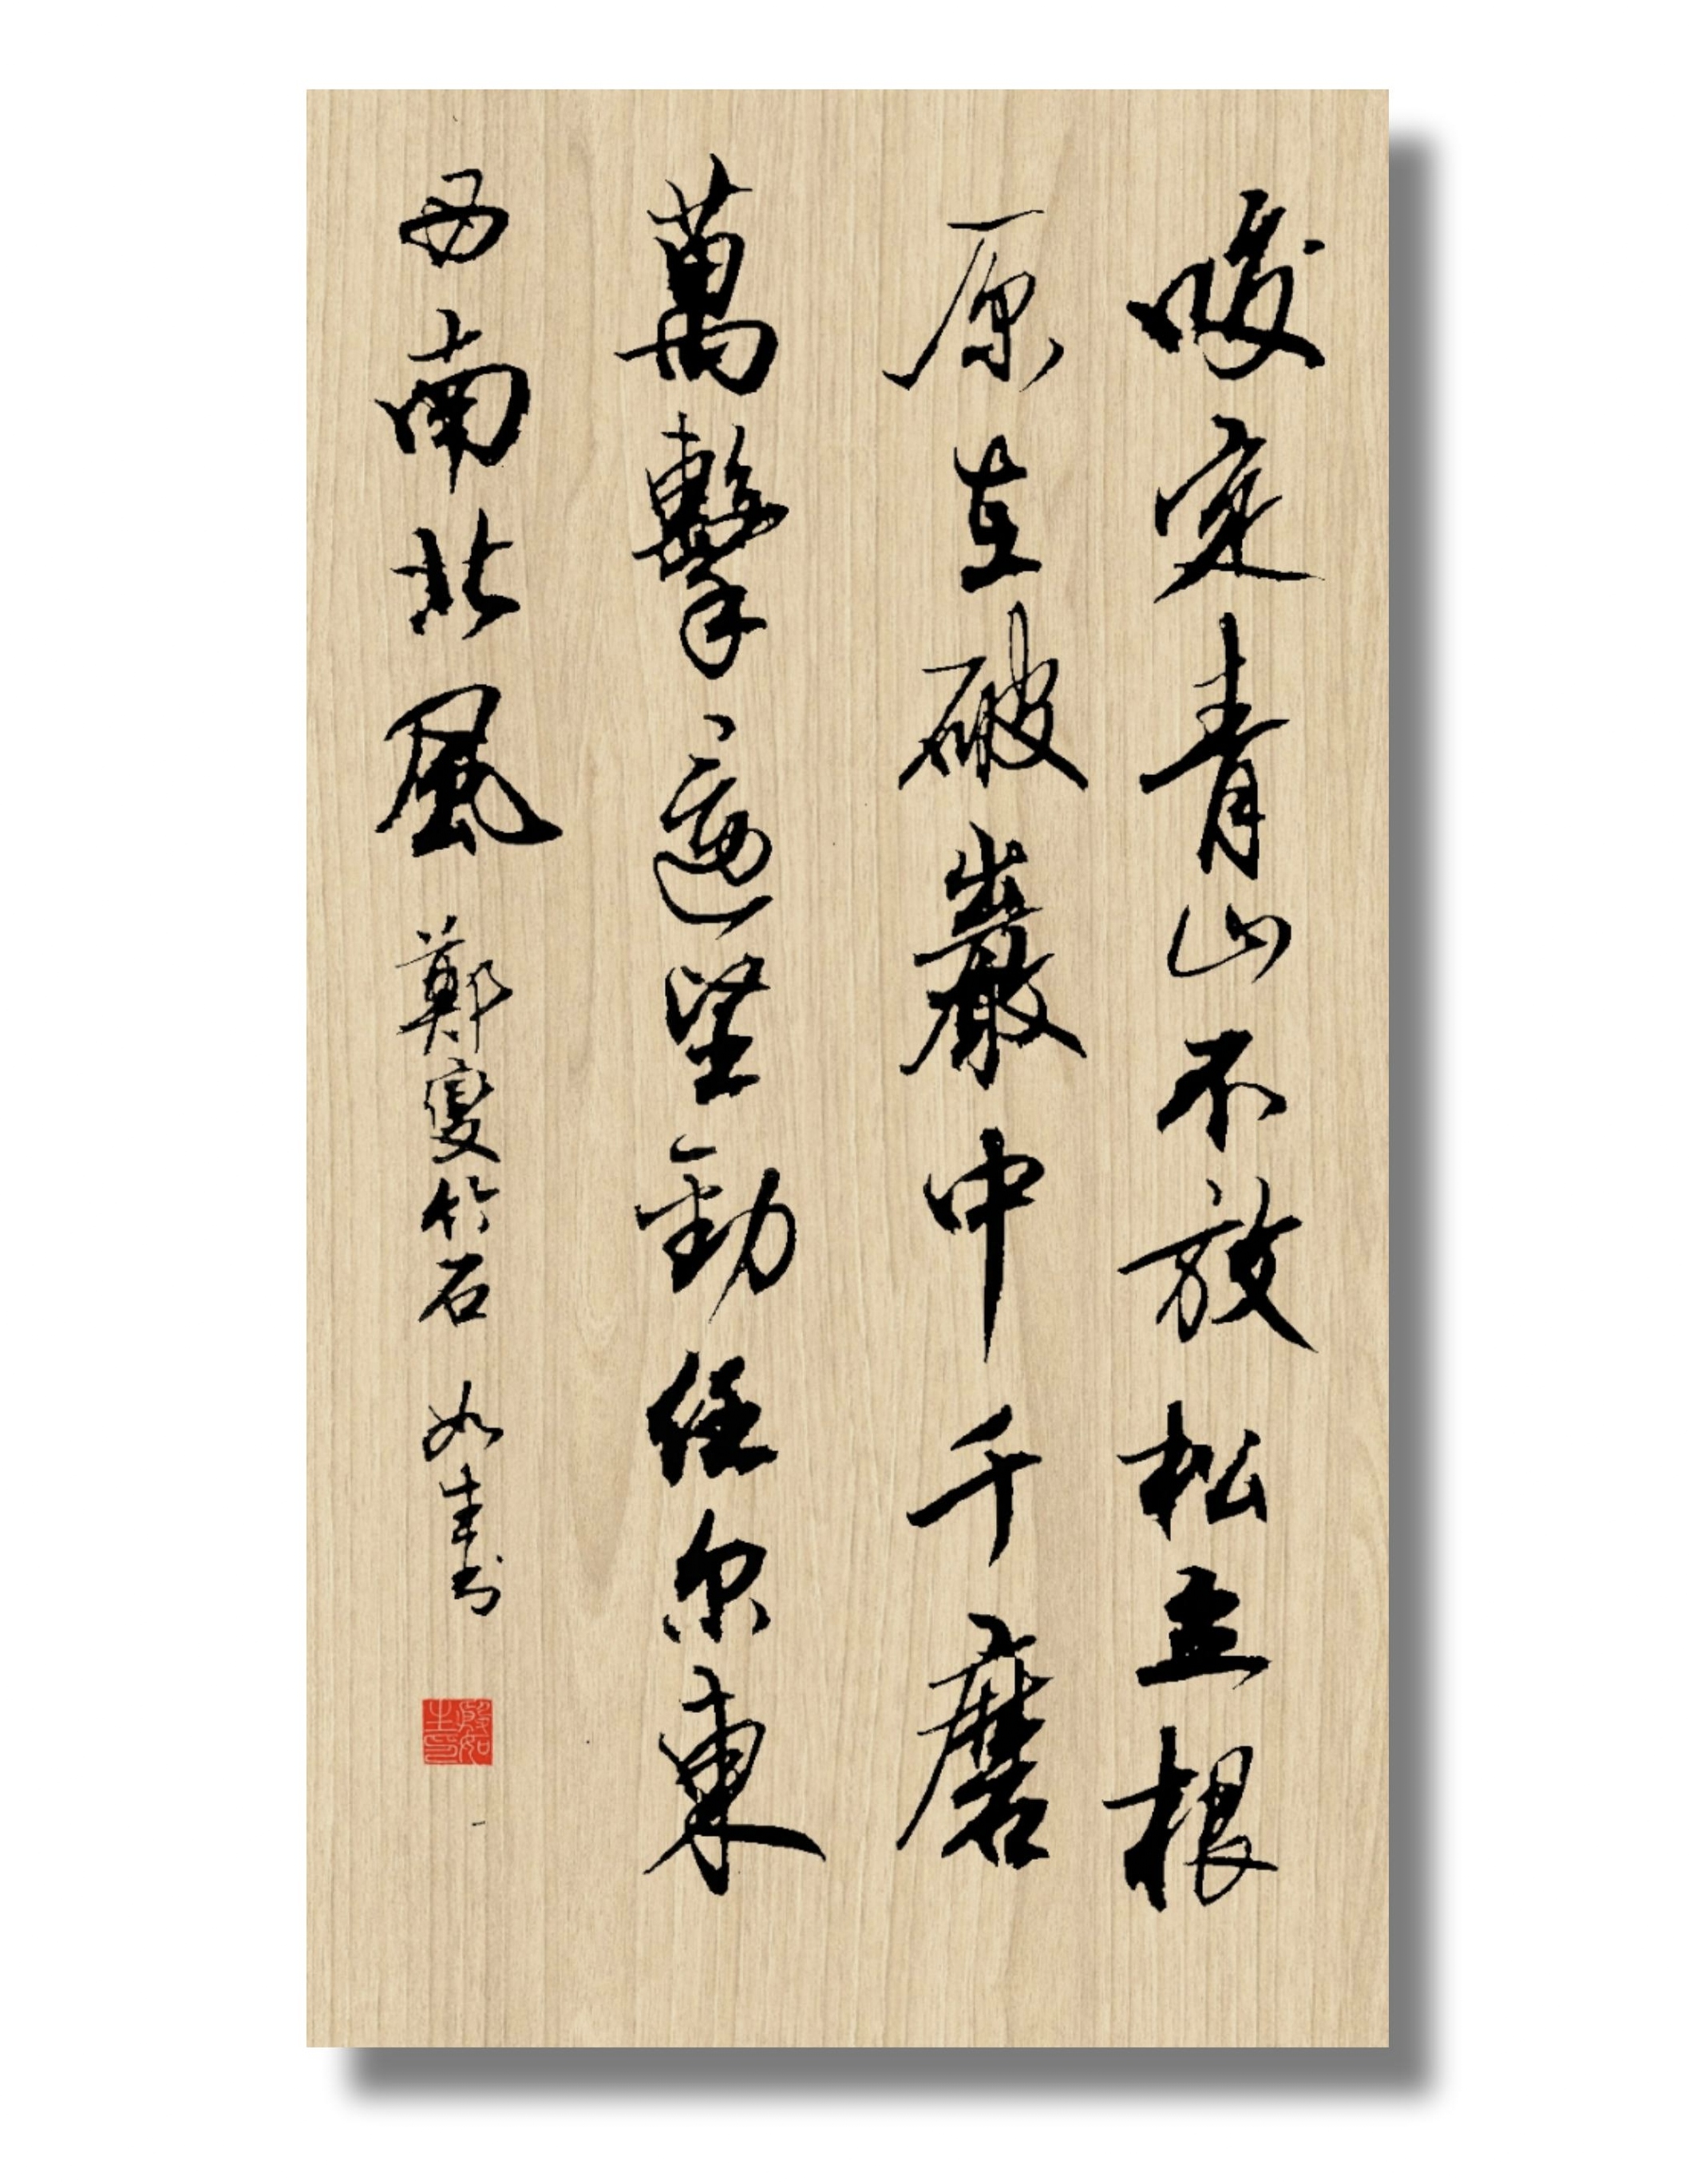 咬定青山不放松立根
原在破巖中千磨
萬擊還堅勁任尔東
西南北風 鄭燮竹石 如生书
殷如生印